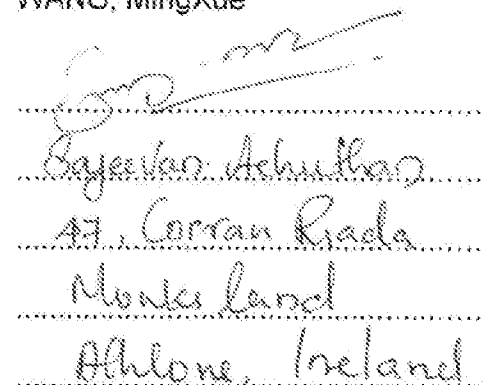 WANG, MingXue
Sajeevan Achuthan
47, Corran Riada
Monksland
Athlone, Ireland